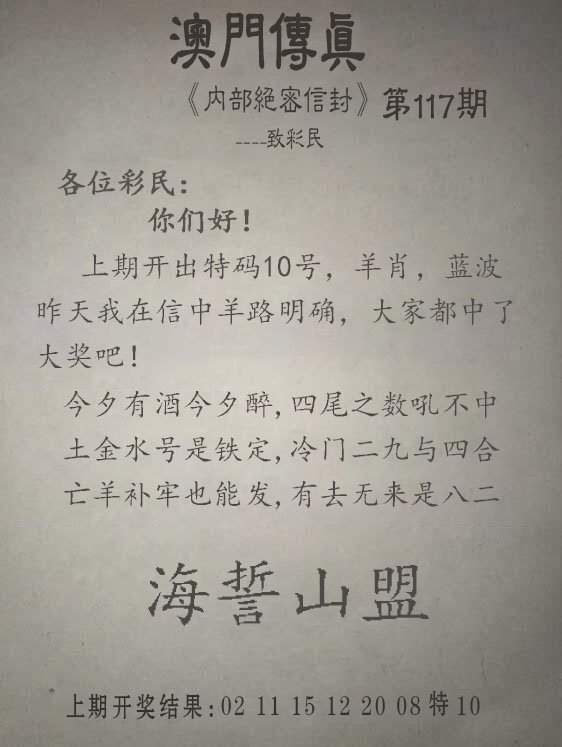 澳門傳真
《内部絕密信封》第117期
----致彩民
各位彩民：
你们好！
上期开出特码10号，羊肖，蓝波
昨天我在信中羊路明确，大家都中了
大奖吧！
今夕有酒今夕醉,四尾之数吼不中
土金水号是铁定,冷门二九与四合
亡羊补牢也能发,有去无来是八二
海誓山盟
上期开奖结果:02 11 15 12 20 08特10